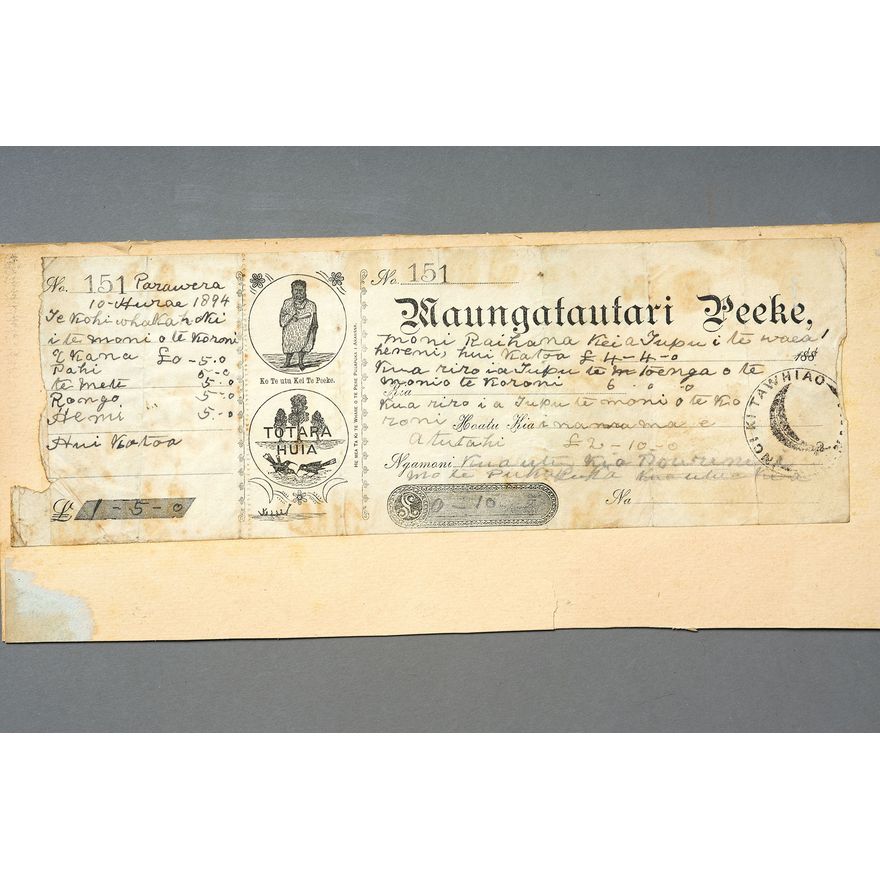 No. 151 Parawera
10-Hurae 1894
Te Kohi whaka
i te moni o te Koroni
£0-5.0
Pahi 5-0
te mete 5.0
Rongo 5-0
Hemi 5.0
Hui Katoa
£ 1-5-0
Ko Te utu Kei Te Peeke.
TOTARA
HUIA
No 151
Maungatautari Peeke,
moni Raihana Kei a Tupu i te waea
hereni, hui Katoa £4-4-0 188
Kua riro i a Tupu te moenga o te
moni o te Koroni 6.0.0
Kia
Kua riro i a Tupu te moni o te Ko
roni Hoatu Kia
Atutahi £2-10-0
Ngamoni
mo te
0-10- Na
KI TAWHIAO